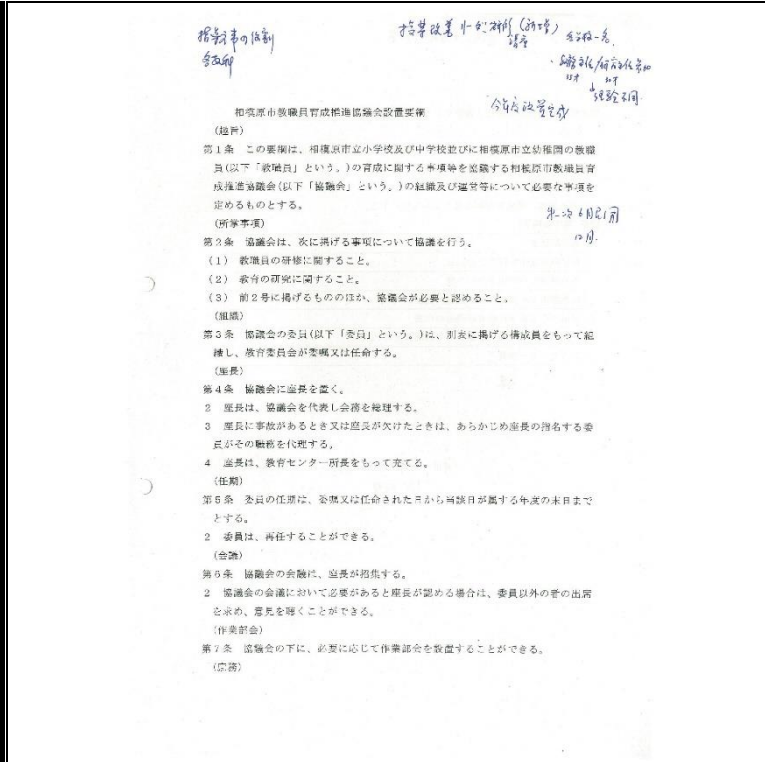 指導主事の役割
各教科
各学校一名
相模原市教職員育成推進協議会設置要綱
(趣旨)
第1条 この要綱は、相模原市立小学校及び中学校並びに相模原市立幼稚園の教職
員(以下「教職員」という。)の育成に関する事項等を協議する相模原市教職員育
成推進協議会(以下「協議会」という。)の組織及び運営等について必要な事項を
定めるものとする。
(所掌事項)
12月.
第2条 協議会は、次に掲げる事項について協議を行う。
(1) 教職員の研修に関すること。
(2) 教育の研究に関すること。
(3) 前2号に掲げるもののほか、協議会が必要と認めること。
(組織)
第3条 協議会の委員(以下「委員」という。)は、別表に掲げる構成員をもって組
織し、教育委員会が委嘱又は任命する。
(座長)
第4条 協議会に座長を置く。
2 座長は、協議会を代表し会務を総理する。
3 座長に事故があるとき又は座長が欠けたときは、あらかじめ座長の指名する委
員がその職務を代理する。
4 座長は、教育センター所長をもって充てる。
(任期)
第5条 委員の任期は、委嘱又は任命された日から当該日が属する年度の末日まで
とする。
2 委員は、再任することができる。
(会議)
第6条 協議会の会議は、座長が招集する。
2 協議会の会議において必要があると座長が認める場合は、委員以外の者の出席
を求め、意見を聴くことができる。
(作業部会)
第7条 協議会の下に、必要に応じて作業部会を設置することができる。
(庶務)